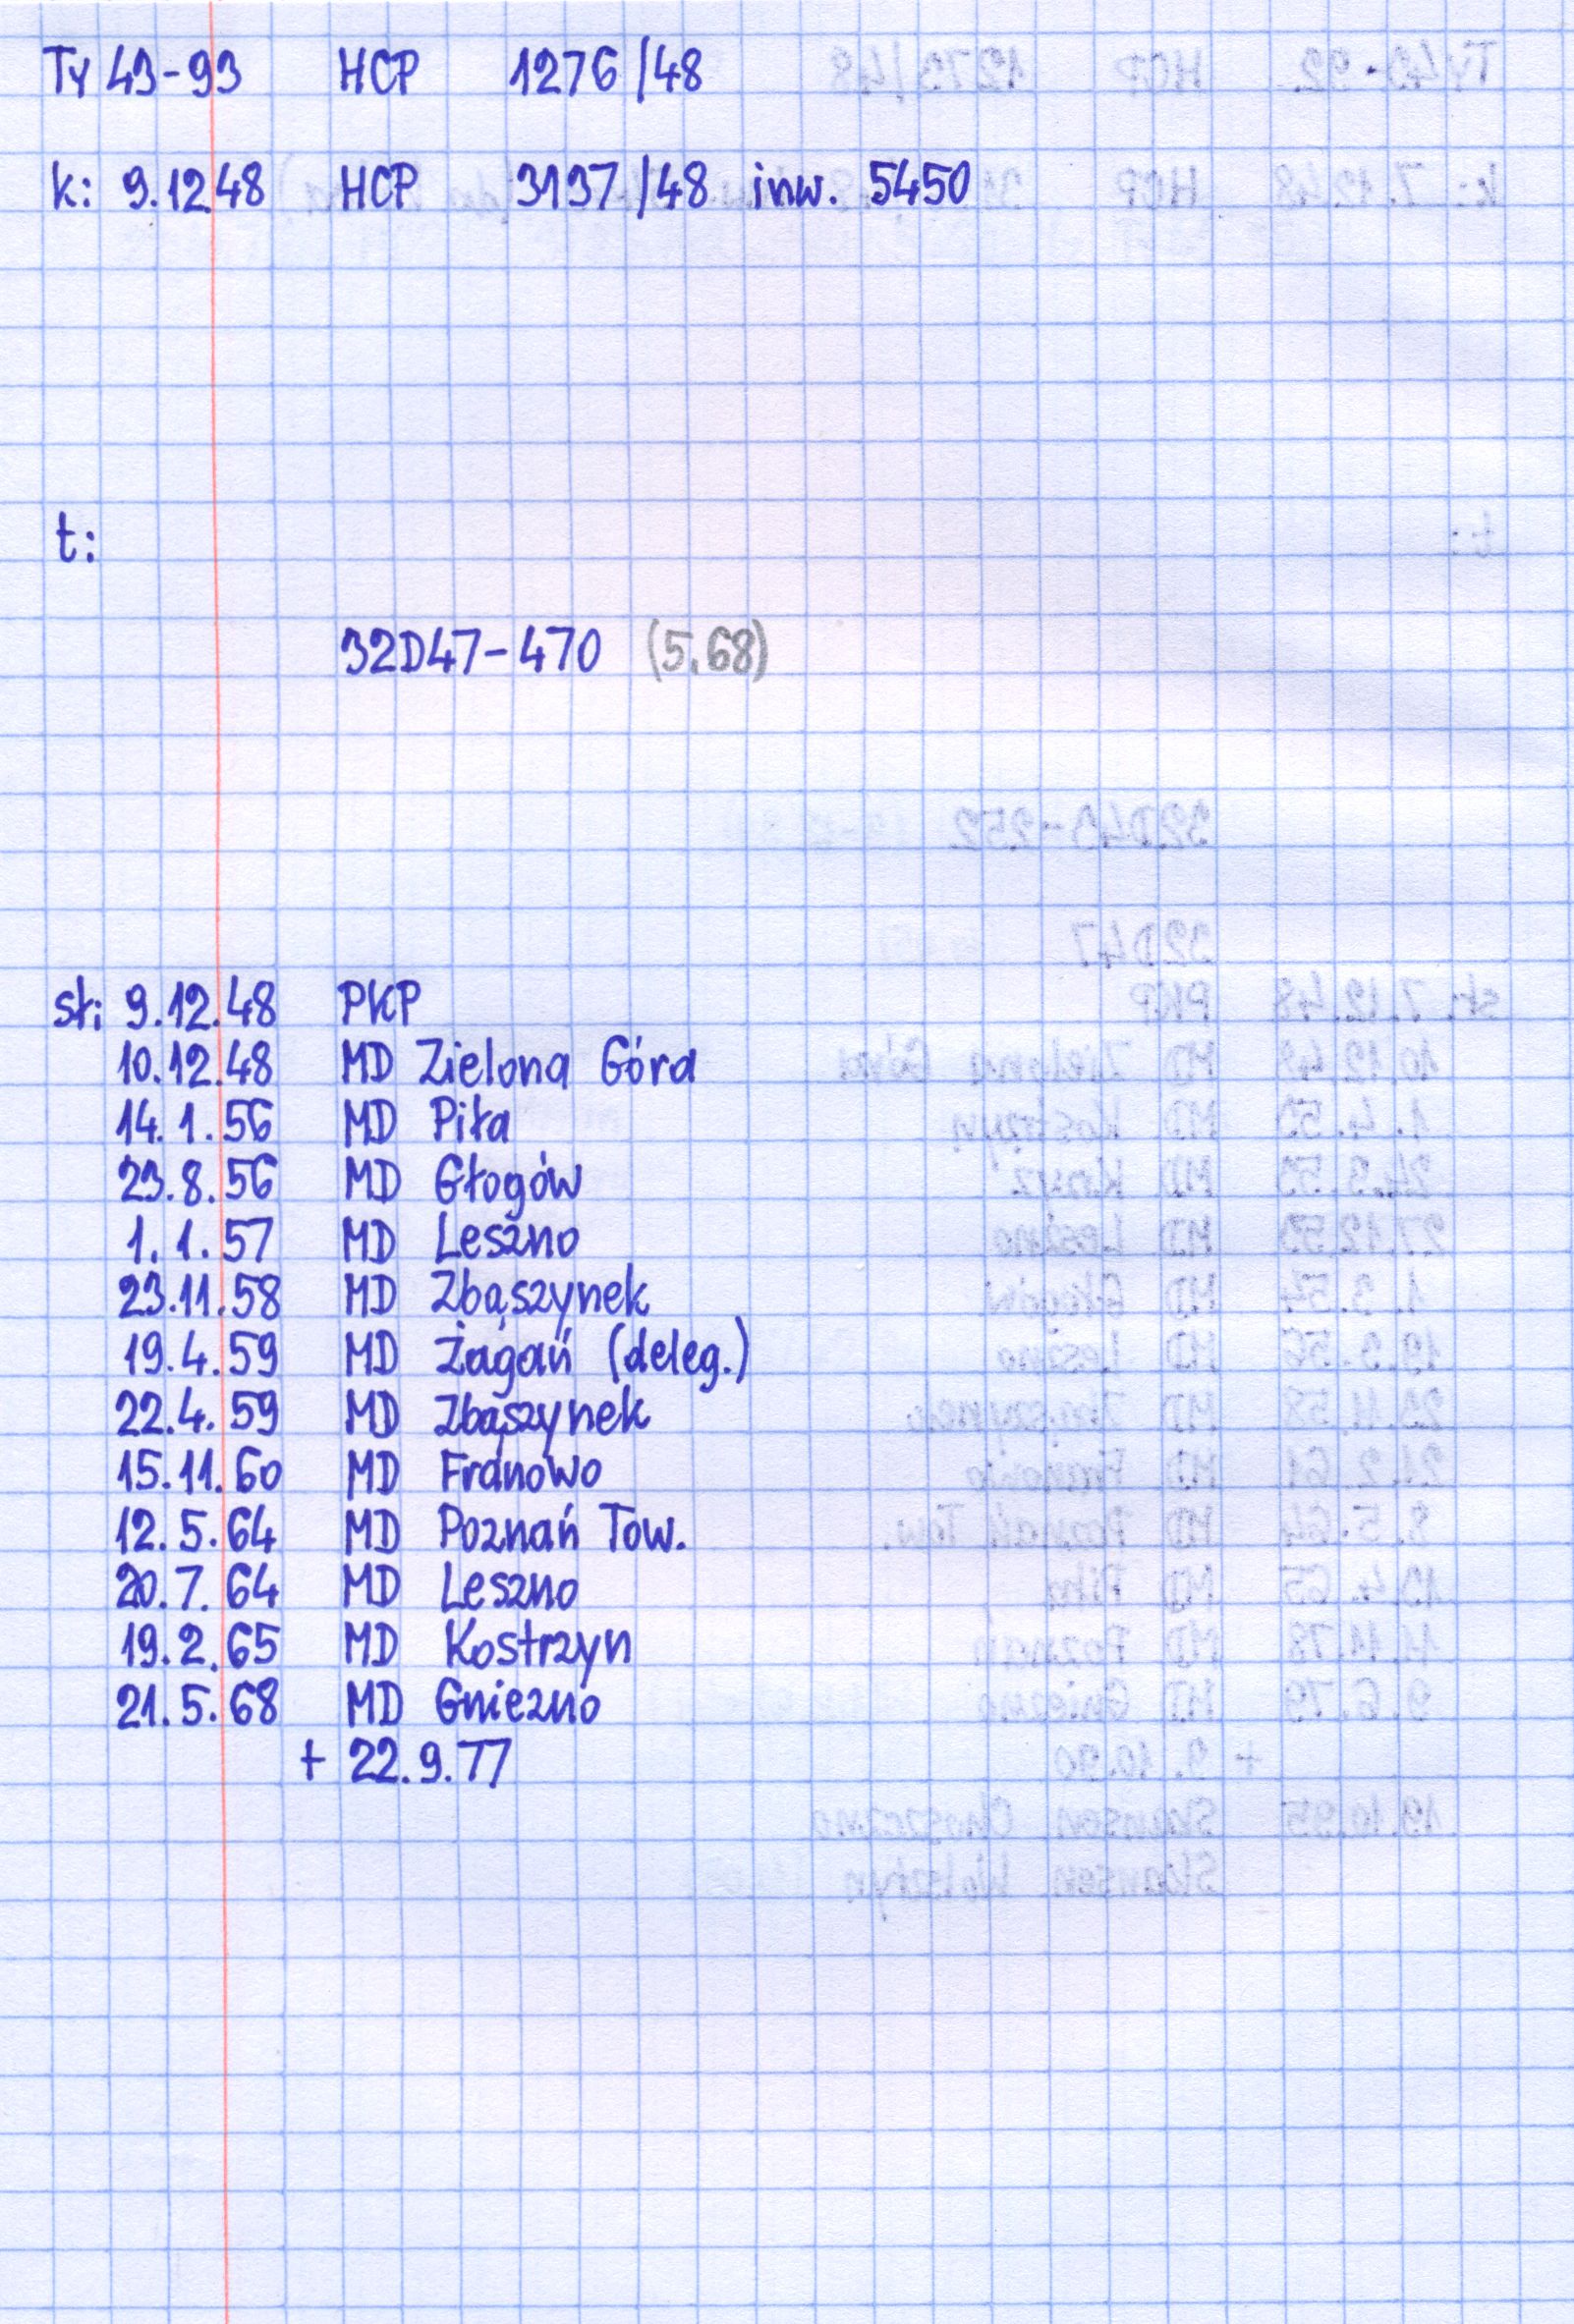 Ty 43-93 HCP 1276/48
k: 9.12.48 HCP 3137/48 inw. 5450
t:
32D47-470 (5.68)
st: 9.12.48 PKP
10.12.48 MD Zielona Góra
14.1.56 MD Piła
23.8.56 MD Głogów
1.1.57 MD Leszno
23.11.58 MD Zbąszynek
19.4.59 MD Żagań (deleg.)
22.4.59 MD Zbąszynek
15.11.60 MD Franowo
12.5.64 MD Poznań Tow.
20.7.64 MD Leszno
19.2.65 MD Kostrzyn
21.5.68 MD Gniezno
+ 22.9.77